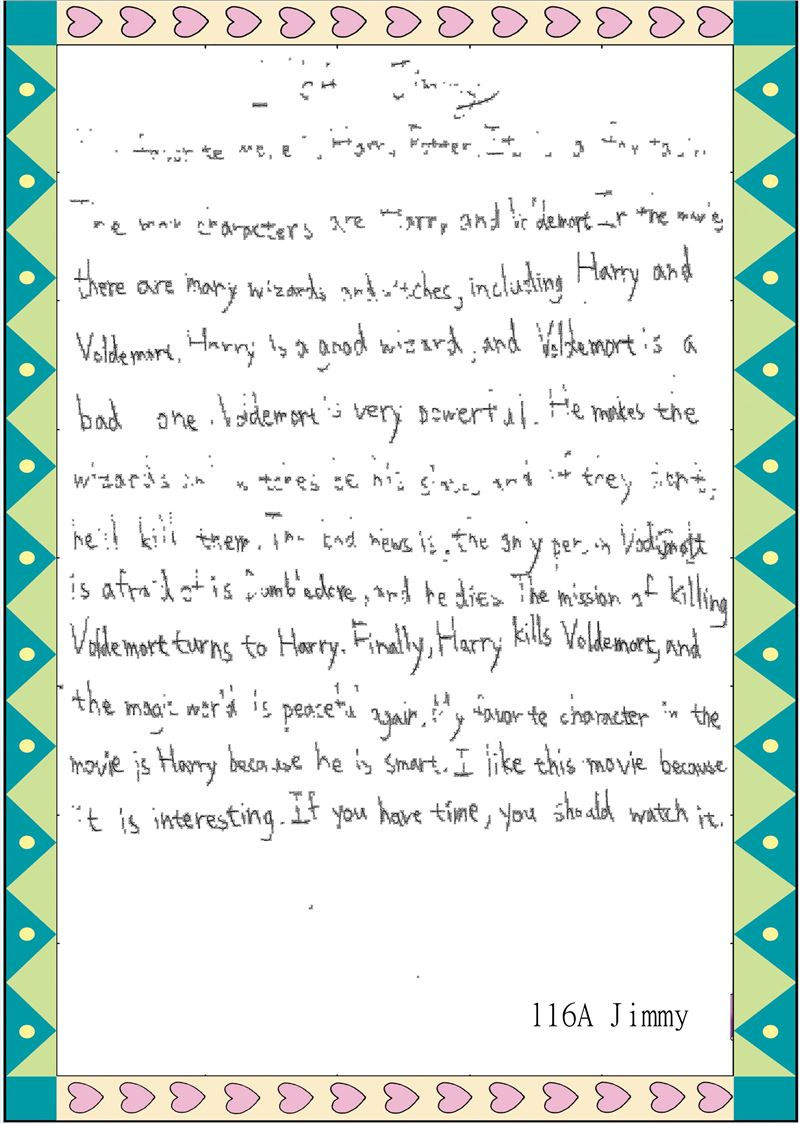 Jimmy
favorite movie is Harry Potter. It is a fantasy
The main characters are Harry and Voldemort. In the movie
there are many wizards and witches, including Harry and
Voldemort. Harry is a good wizard, and Voldemort is a
bad one. Voldemort is very powerful. He makes the
wizards and witches be his slaves, and if they don't,
he'll kill them. The bad news is, the only person Voldemort
is afraid of is Dumbledore, and he dies. The mission of killing
Voldemort turns to Harry. Finally, Harry kills Voldemort, and
the magic world is peaceful again. My favorite character in the
movie is Harry because he is smart. I like this movie because
it is interesting. If you have time, you should watch it.
116A Jimmy